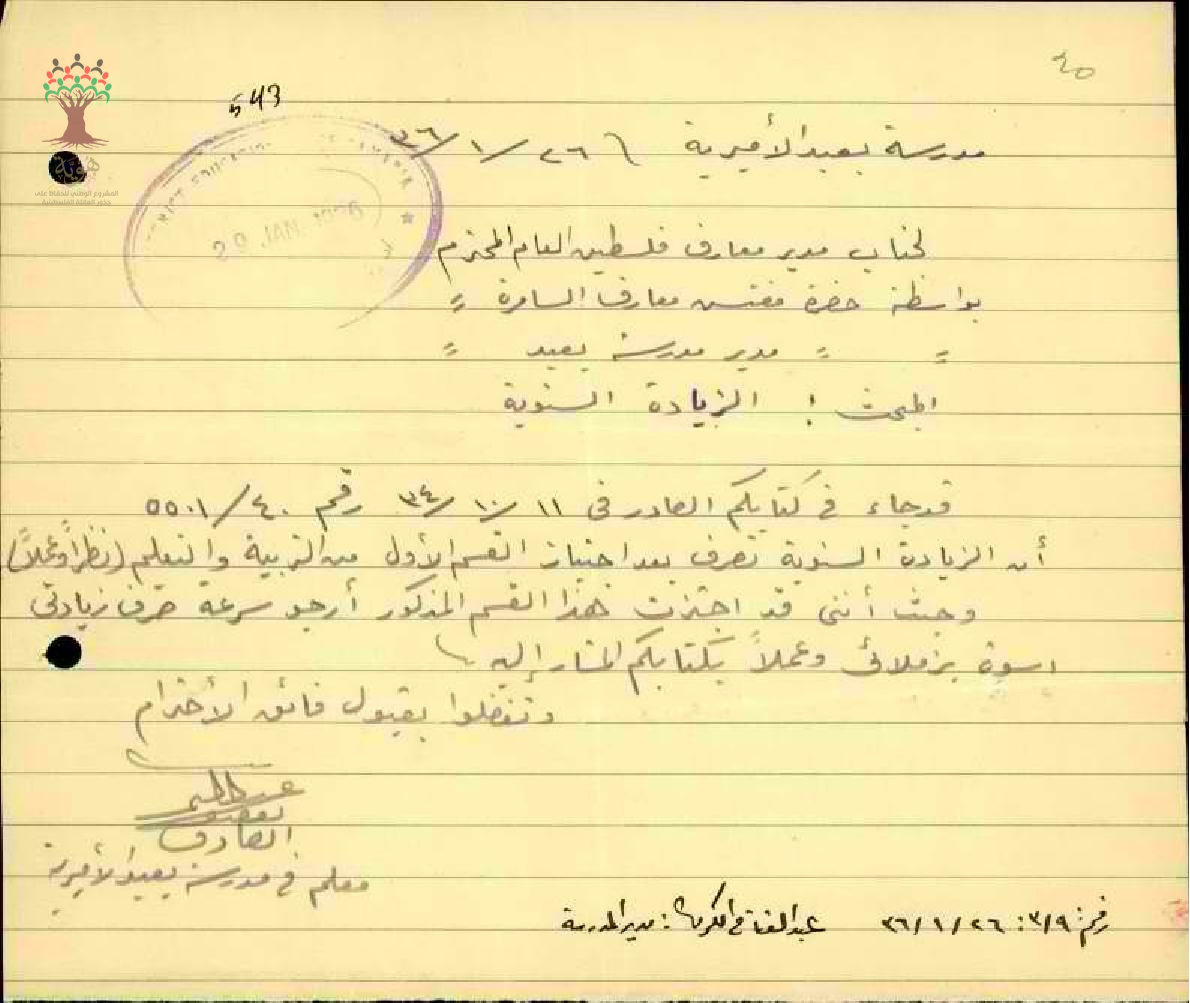 ٤٥
543
مدرسة يعبد الأميرية ٢٦/١/٣٦
29 JAN 1936
هوية
المشروع الوطني للحفاظ على
جذور العائلة الفلسطينية
لجناب مدير معارف فلسطين العام المحترم
بواسطة حضرة مفتش معارف السامرة =
= = مدير مدرسة يعبد =
المبحث : الزيادة السنوية
قد جاء في كتابكم الصادر في ١١/١٠/٣٤ رقم ٤٠/٥٥٠١
أن الزيادة السنوية تصرف بعد اجتياز القسم الأول من التربية والتعليم (نظراً وعملاً)
وحيث أنني قد اجتزت هذا القسم المذكور أرجو سرعة صرف زيادتي
اسوة بزملائي وعملاً بكتابكم المشار إليه
وتفضلوا بقبول فائق الأحترام
الصادق
معلم في مدرسة يعبد الأميرية
رقم: ٣/٩ : ٢٦/١/٣٦ عبد الفتاح الكرمي : مدير المدرسة